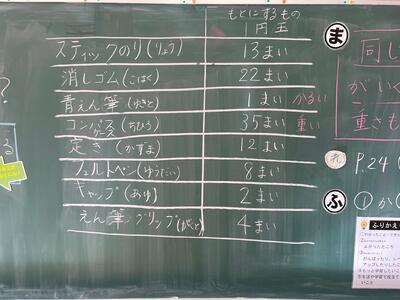 もとにするもの
1円玉
スティックのり(りょう) 13まい
消しゴム(こはく) 22まい
青えん筆(ゆきと) 1まい かるい
コンパス(ちひろ) 35まい 重い
定き(かずま) 12まい
フェルトペン(ゆうだい) 8まい
キャップ(あゆ) 2まい
えん筆グリップ(がくと) 4まい
?
る
ま
同し
がいく
重さも
れ P.24
ふ ①か(
ふりかえ